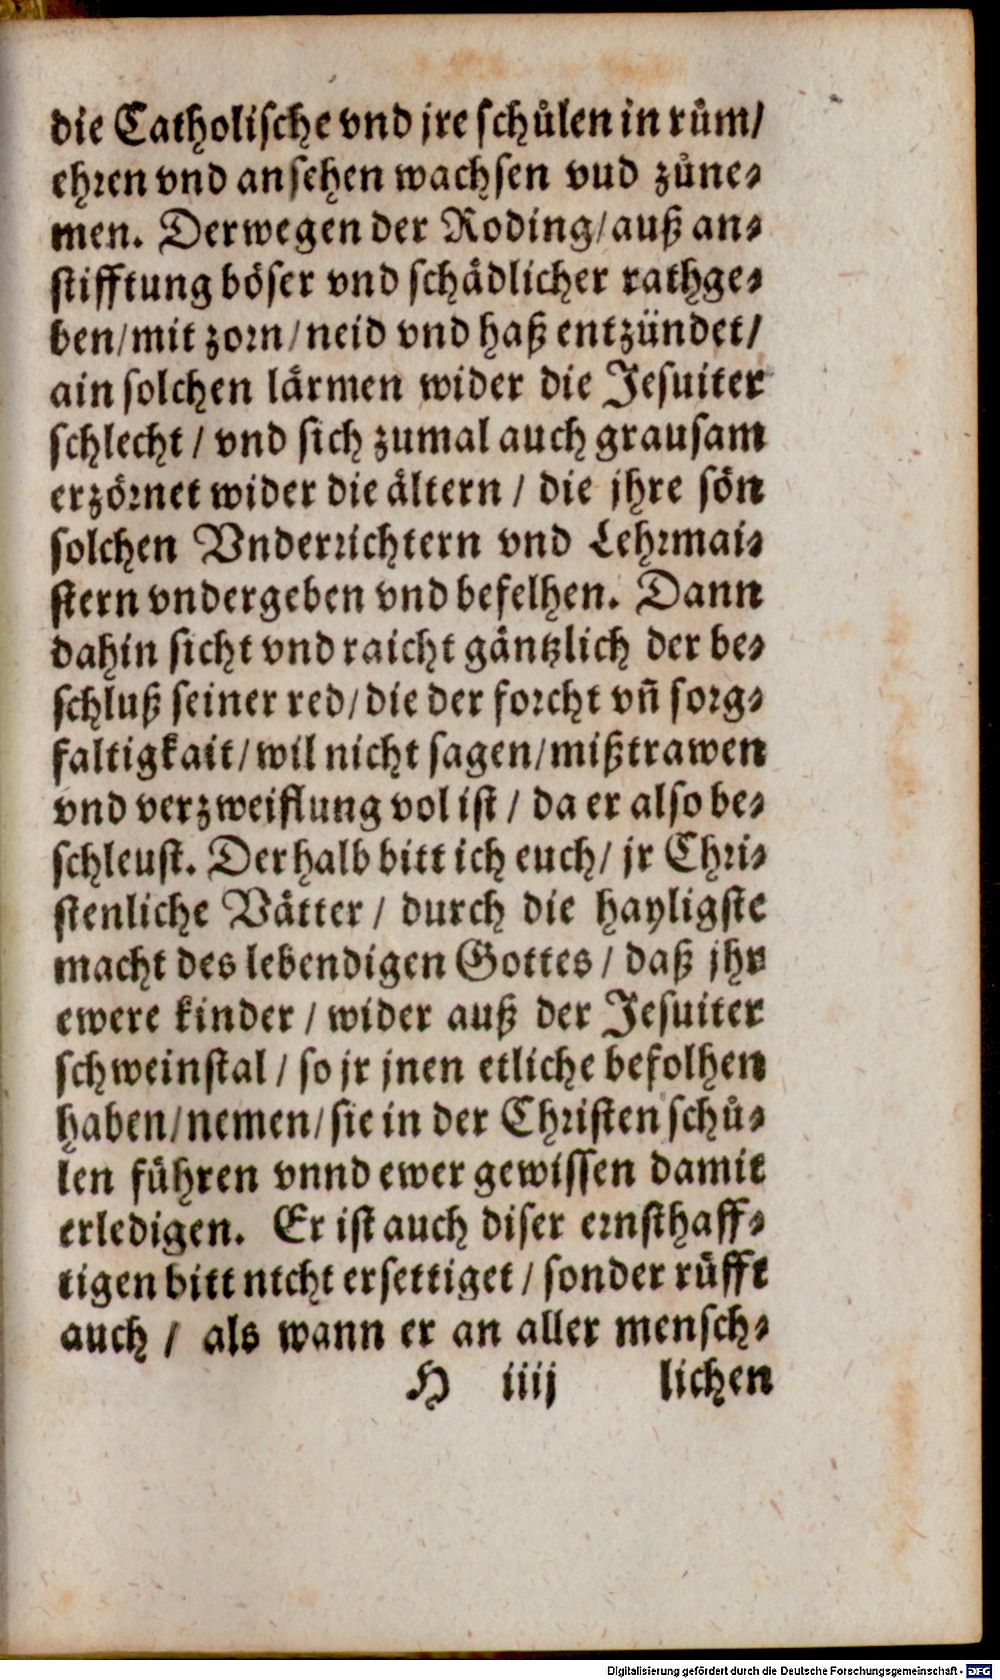 die Catholische vnd jre schůlen in rům/
ehren vnd ansehen wachsen vud zůne⸗
men. Derwegen der Roding/ auß an⸗
stifftung böser vnd schådlicher rathge⸗
ben/ mit zorn/ neid vnd haß entzündet/
ain solchen lårmen wider die Jesuiter
schlecht/ vnd sich zumal auch grausam
erzörnet wider die åltern/ die jhre sön
solchen Vnderrichtern vnd Lehrmai⸗
stern vndergeben vnd befelhen. Dann
dahin sicht vnd raicht gåntzlich der be⸗
schluß seiner red/ die der forcht vñ sorg⸗
faltigkait/ wil nicht sagen/ mißtrawen
vnd verzweiflung vol ist/ da er also be⸗
schleust. Derhalb bitt ich euch/ jr Chri⸗
stenliche Våtter/ durch die hayligste
macht des lebendigen Gottes/ daß jhr
ewere kinder/ wider auß der Jesuiter
schweinstal/ so jr jnen etliche befolhen
haben/ nemen/ sie in der Christen schů⸗
len führen vnnd ewer gewissen damit
erledigen. Er ist auch diser ernsthaff⸗
tigen bitt nicht ersettiget/ sonder růfft
auch/ als wann er an aller mensch⸗
H iiij lichen
Digitalisierung gefördert durch die Deutsche Forschungsgemeinschaft - DFG